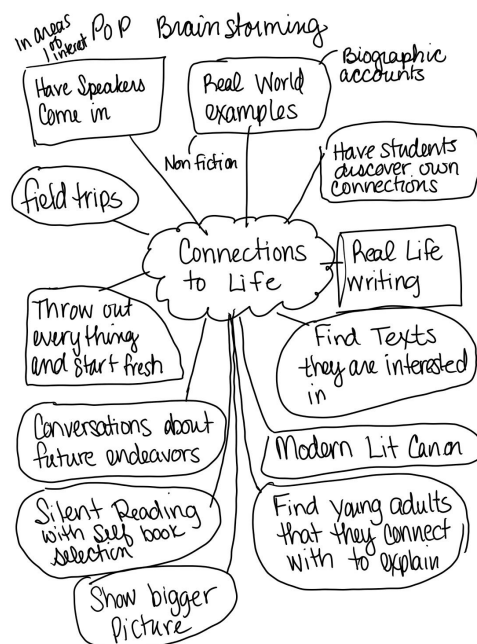 PoP Brainstorming
In areas
of
interet
Have Speakers
Come in
Real World
examples
Biographic
accounts
Non fiction
Have students
discover own
connections
field trips
Connections
to Life
Real Life
writing
Throw out
everything
and start fresh
Find Texts
they are interested
in
Conversations about
future endeavors
Modern Lit Canon
Silent Reading
with Self book
selection
Find young adults
that they connect
with to explain
Show bigger
Picture